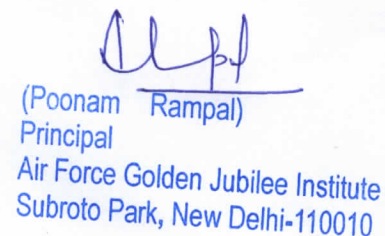 (Poonam Rampal)
Principal
Air Force Golden Jubilee Institute
Subroto Park, New Delhi-110010